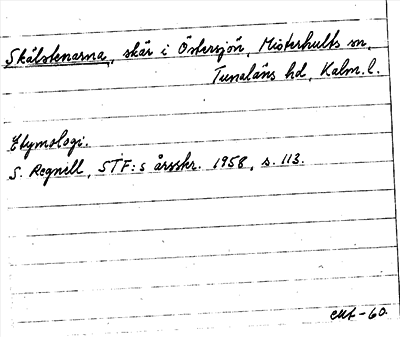 Skälstenarna, skär i Östersjön, Misterhults sn,
Tunaläns hd, Kalm. l.
Etymologi.
S. Regnell, STF:s årsskr. 1958, s. 113.
-60